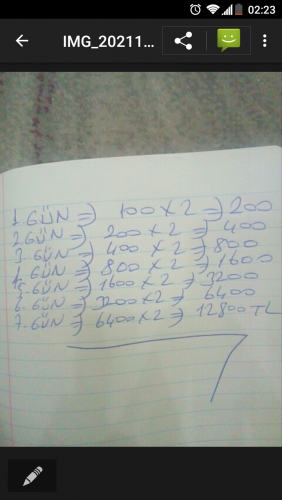 02:23
IMG_20211...
1.GÜN => 100 x 2 => 200
2.GÜN => 200 x 2 => 400
3.GÜN => 400 x 2 => 800
4.GÜN => 800 x 2 => 1600
5.GÜN => 1600 x 2 => 3200
6.GÜN => 3200 x 2 => 6400
7.GÜN => 6400 x 2 => 12800 TL